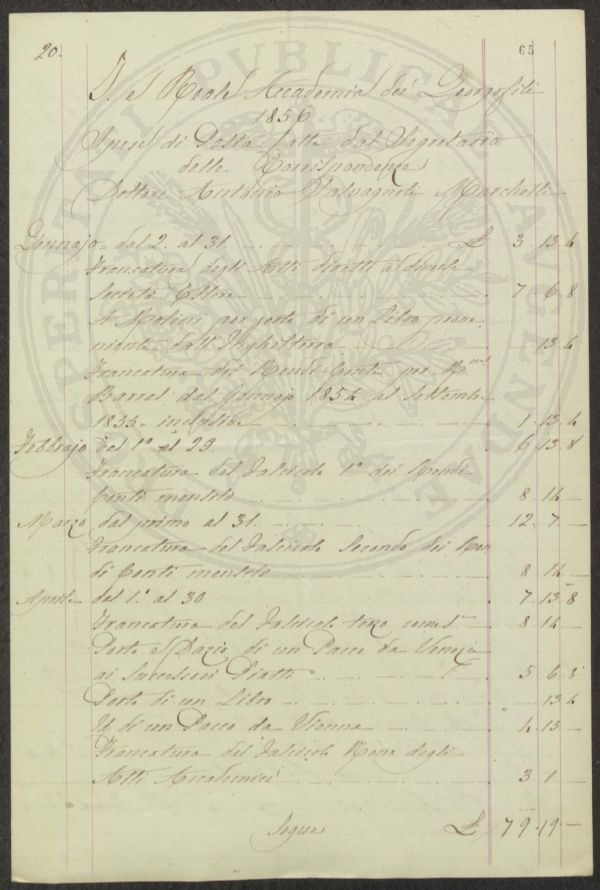 20.
65
I. e Reale Accademia dei Georgofili
1856
Spese di Posta fatte dal Segretario
delle Corrispondenze
Dottore Antonio Salvagnoli Marchetti
Gennajo dal 2. al 31. £ 3. 13. 4
Francatura degli Atti diretti a diverse
Società Estere 7. 6. 8
A Molini per porto di un Libro prove
niente dall'Inghilterra 13. 4
Francatura dei Rendi-Conti per
Barral dal Gennajo 1854 al Settembre
1855. inclusive 1. 13. 4
Febbrajo del 1° al 29. 6. 13. 8
Francatura del Fascicolo 1° dei Rendi
Conti mensili 8. 14. —
Marzo dal primo al 31. 12. 7. —
Francatura del Fascicolo Secondo dei Ren
di Conti mensili 8. 14. —
Aprile del 1° al 30 7. 13. 8
Francatura del Fascicolo terzo come sa. 8. 14. —
Porto e Dazio di un Pacco da Venezia
ai Successori Piatti 5. 6. 8
Porto di un Libro 13. 4
Id. di un Pacco da Vienna 4. 13. —
Francatura del Fascicolo degli
Atti Accademici 3. 1. —
Segue £ 79. 19. —
PUBLICAE
PROSPERITATI
AUGENDAE